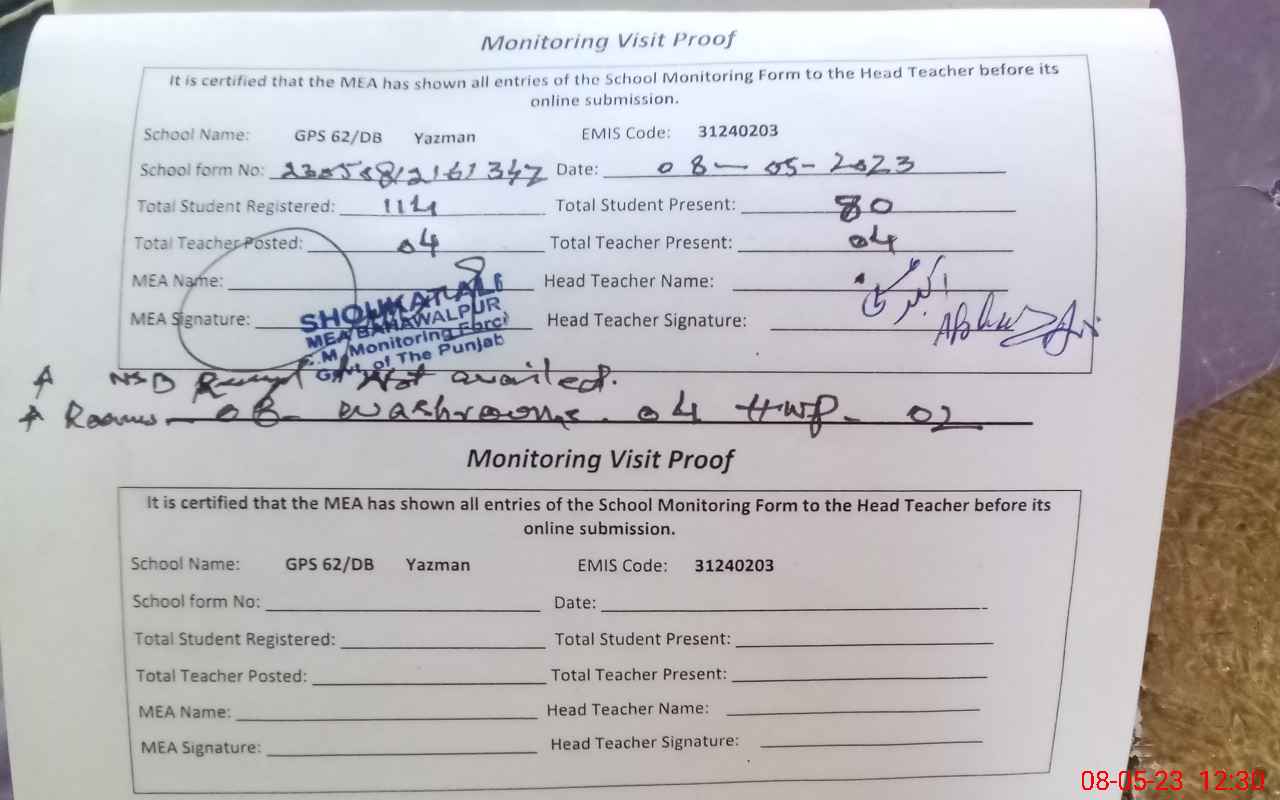 Monitoring Visit Proof
It is certified that the MEA has shown all entries of the School Monitoring Form to the Head Teacher before its
online submission.
School Name: GPS 62/DB Yazman EMIS Code: 31240203
School form No: Date: 08-05-2023
Total Student Registered: 114 Total Student Present: 80
Total Teacher Posted: 04 Total Teacher Present: 04
MEA Name: Head Teacher Name:
MEA Signature: Head Teacher Signature:
SHOUKAT ALI
MEA BAHAWALPUR
C.M. Monitoring Force
Govt. of The Punjab
NSB Not availed.
Rooms - 08 - washrooms. 04 HWP - 02
Monitoring Visit Proof
It is certified that the MEA has shown all entries of the School Monitoring Form to the Head Teacher before its
online submission.
School Name: GPS 62/DB Yazman EMIS Code: 31240203
School form No: Date:
Total Student Registered: Total Student Present:
Total Teacher Posted: Total Teacher Present:
MEA Name: Head Teacher Name:
MEA Signature: Head Teacher Signature:
08-05-23 12:30